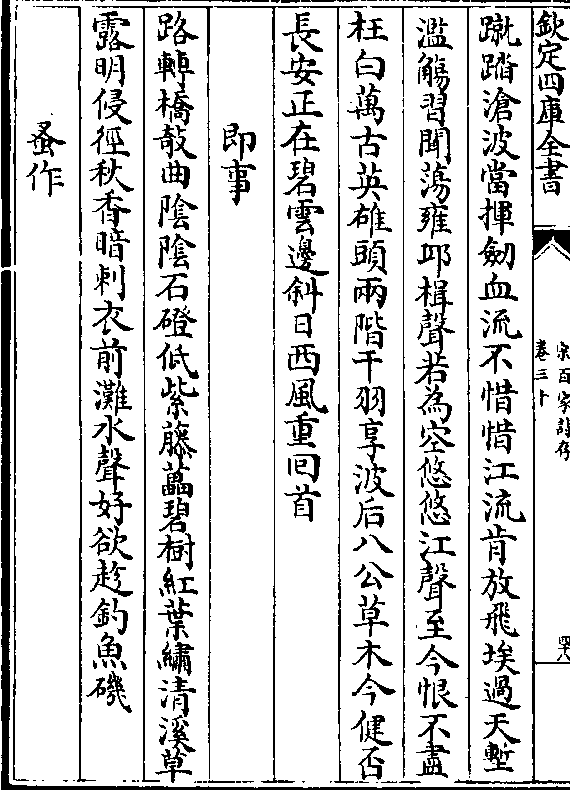 欽定四庫全書
宋百家詩存
卷三十
蹴踏滄波當揮劒血流不惜惜江流肯放飛埃過天塹
濫觴習聞蕩雍邛楫聲若為空悠悠江聲至今恨不盡
枉白萬古英雄頭兩階干羽享波后八公草木今健否
長安正在碧雲邊斜日西風重回首
即事
路轉橋敧曲陰陰石磴低紫藤藟碧樹紅葉繡清溪草
露明侵徑秋香暗刺衣前灘水聲好欲趁釣魚磯
蚤作